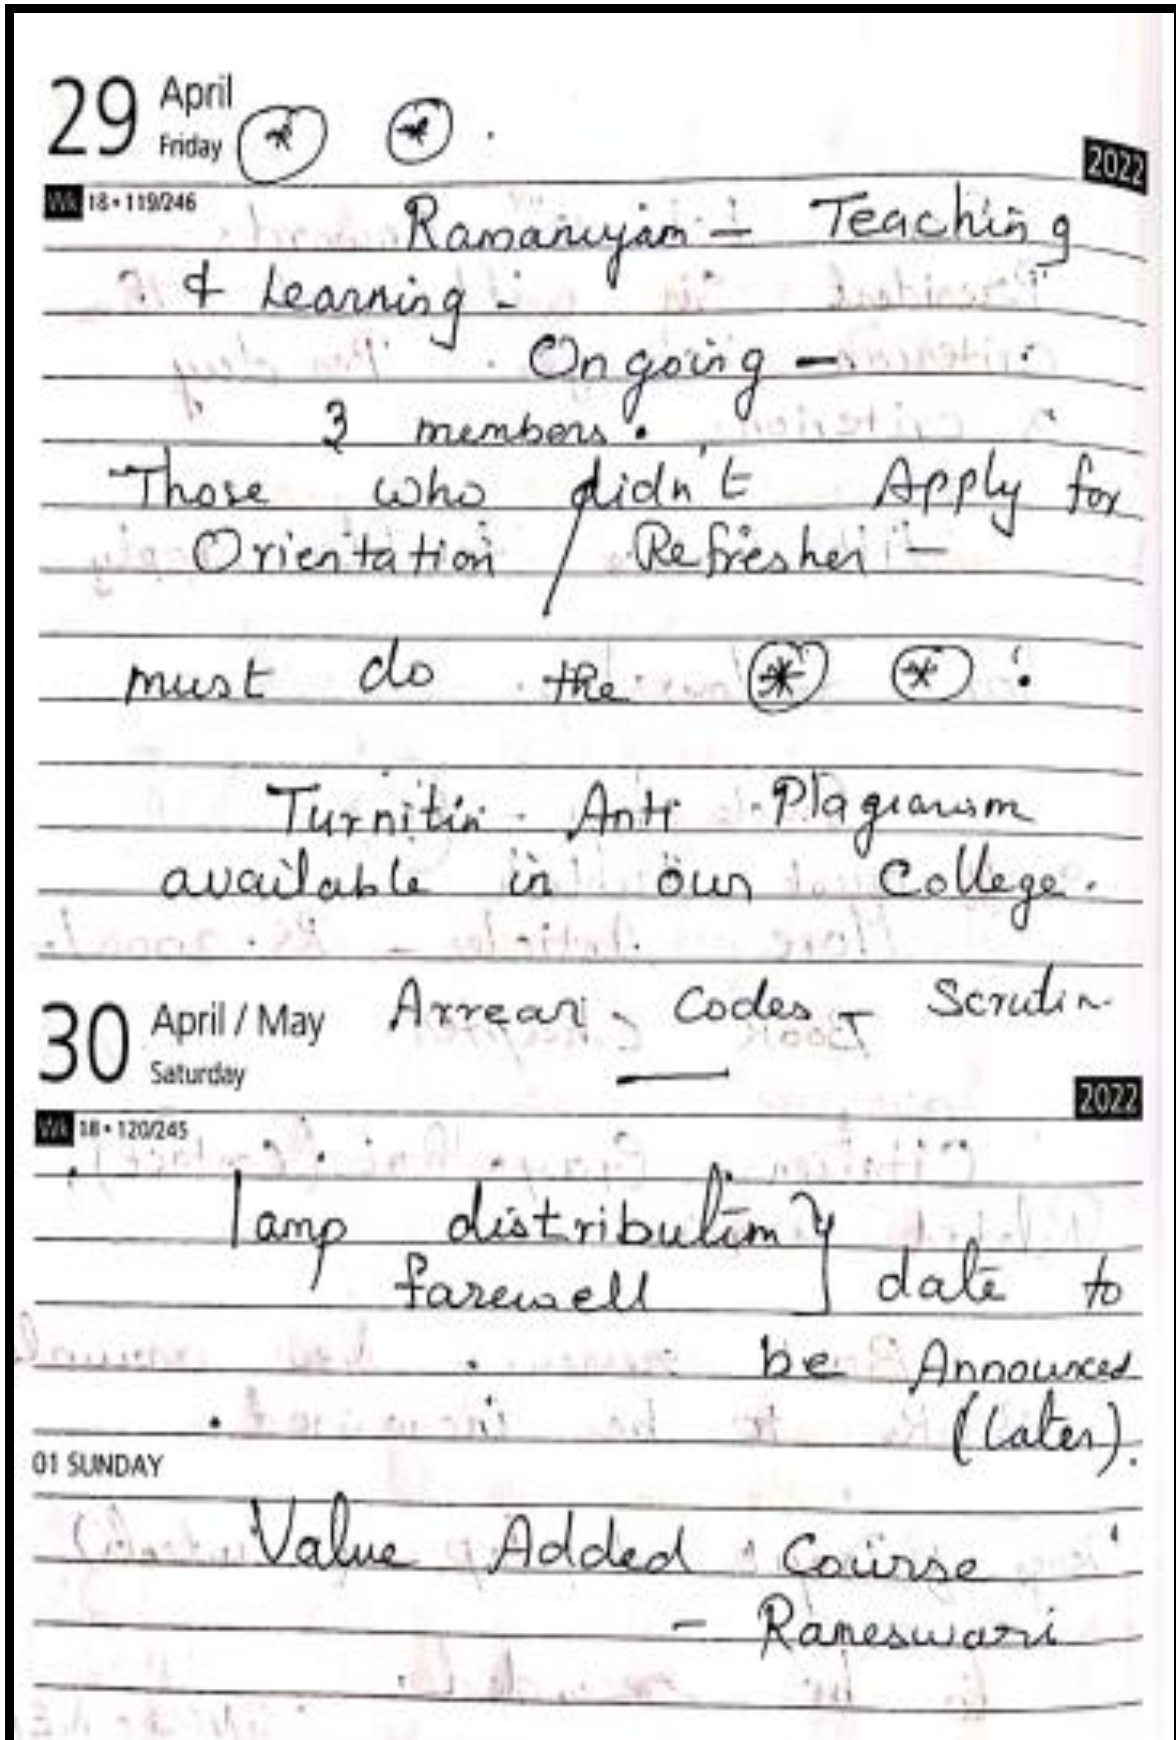 29 April
Friday
2022
Wk 18 • 119/246
Ramanujam - Teaching
& Learning -
Ongoing -
3 members.
Those who didn't Apply for
Orientation / Refresher -
must do the * * :
Turnitin - Anti Plagiarism
available in our College.
30 April / May
Saturday
Arrear - Codes -
2022
Wk 18 • 120/245
lamp distribution
farewell } date to
be Announced
(Later).
01 SUNDAY
Value Added Course
- Rameswari